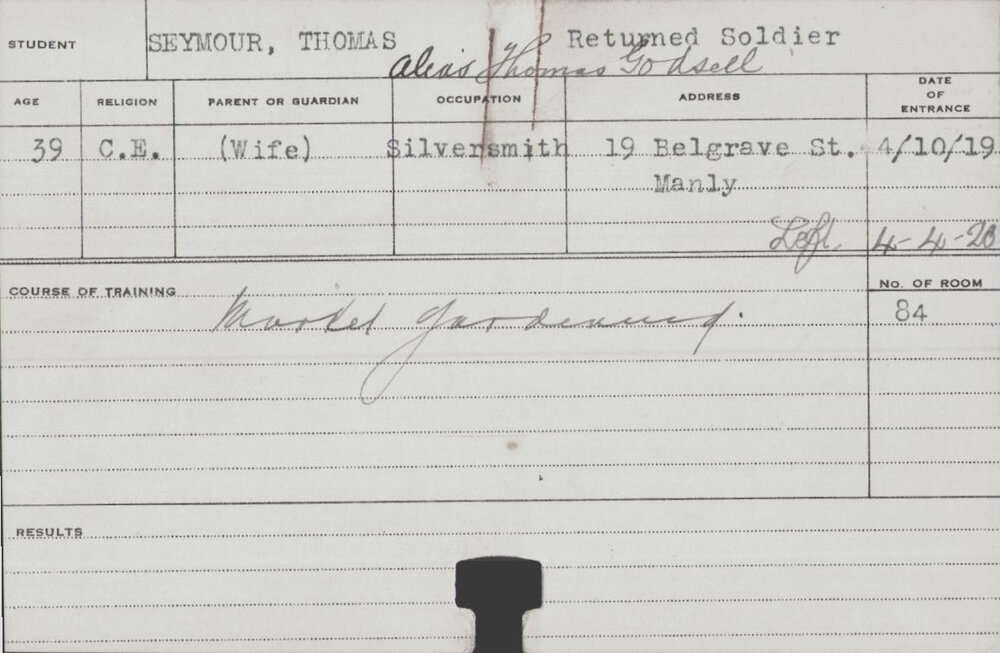 STUDENT SEYMOUR, THOMAS Returned Soldier
alias Thomas Godsell
AGE RELIGION PARENT OR GUARDIAN OCCUPATION ADDRESS DATE OF ENTRANCE
39 C.E. (Wife) Silversmith 19 Belgrave St. 4/10/19
Manly
Left 4-4-20
COURSE OF TRAINING Market Gardening. No. OF ROOM
84
RESULTS